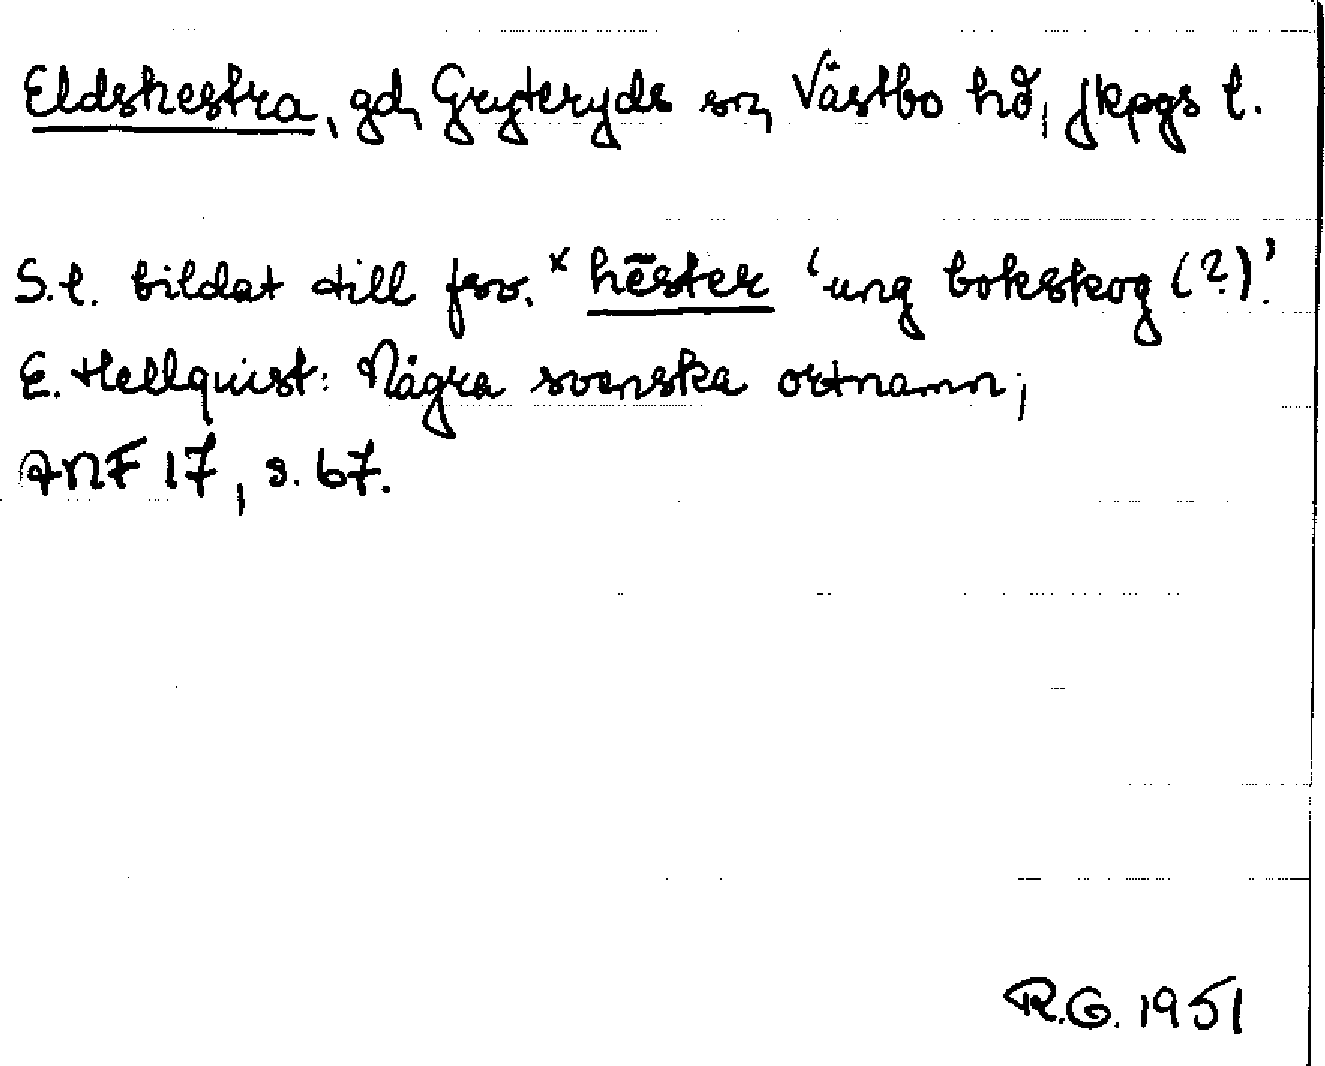 Eldshestra, gd, Gryteryds sn, Västbo hd, Jkpgs l.
S.l. bildat till fsv. *hēster 'ung bokskog (?)'.
E. Hellquist: Några svenska ortnamn;
ANF 17, s. 67.
R.G. 1951